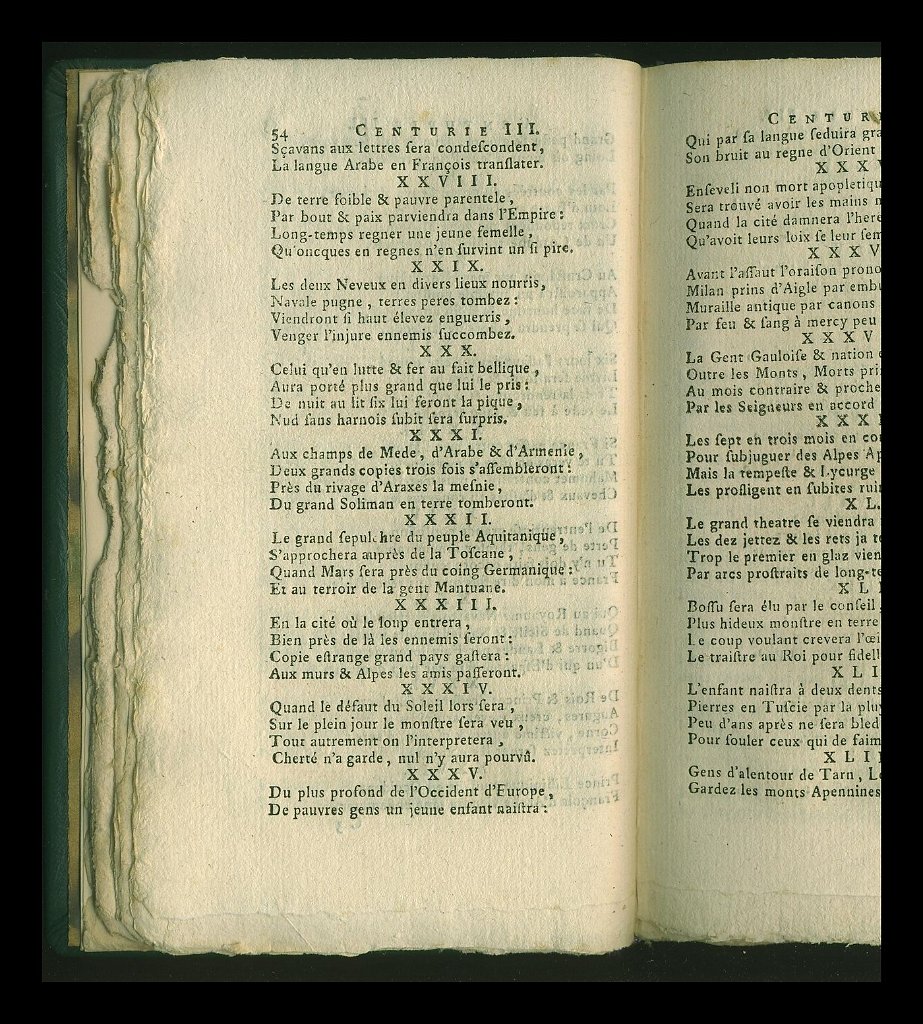 54 CENTURIE III.
Sçavans aux lettres ſera condeſcondent,
La langue Arabe en François tranſlater.
XXVIII.
De terre foible & pauvre parentele,
Par bout & paix parviendra dans l'Empire:
Long-temps regner une jeune femelle,
Qu'oncques en regnes n'en ſurvint un ſi pire.
XXIX.
Les deux Neveux en divers lieux nourris,
Navale pugne, terres peres tombez:
Viendront ſi haut élevez enguerris,
Venger l'injure ennemis ſuccombez.
XXX.
Celui qu'en lutte & fer au fait bellique,
Aura porté plus grand que lui le pris:
De nuit au lit ſix lui feront la pique,
Nud ſans harnois ſubit ſera ſurpris.
XXXI.
Aux champs de Mede, d'Arabe & d'Armenie,
Deux grands copies trois fois s'aſſembleront:
Près du rivage d'Araxes la meſnie,
Du grand Soliman en terre tomberont.
XXXII.
Le grand ſepulchre du peuple Aquitanique,
S'approchera auprès de la Toſcane,
Quand Mars ſera près du coing Germanique:
Et au terroir de la gent Mantuane.
XXXIII.
En la cité où le loup entrera,
Bien près de là les ennemis ſeront:
Copie eſtrange grand pays gaſtera:
Aux murs & Alpes les amis paſſeront.
XXXIV.
Quand le défaut du Soleil lors ſera,
Sur le plein jour le monſtre ſera veu,
Tout autrement on l'interpretera,
Cherté n'a garde, nul n'y aura pourvû.
XXXV.
Du plus profond de l'Occident d'Europe,
De pauvres gens un jeune enfant naiſtra:
CENTUR
Qui par ſa langue ſeduira gra
Son bruit au regne d'Orient
XXXV
Enſeveli non mort apopletiqu
Sera trouvé avoir les mains m
Quand la cité damnera l'here
Qu'avoit leurs loix ſe leur ſem
XXXV
Avant l'aſſaut l'oraiſon prono
Milan prins d'Aigle par embu
Muraille antique par canons
Par feu & ſang à mercy peu
XXXV
La Gent Gauloiſe & nation
Outre les Monts, Morts pri
Au mois contraire & proche
Par les Seigneurs en accord
XXXI
Les ſept en trois mois en co
Pour ſubjuguer des Alpes Ap
Mais la tempeſte & Lycurge
Les profligent en ſubites ruin
XL.
Le grand theatre ſe viendra
Les dez jettez & les rets ja t
Trop le premier en glaz vien
Par arcs proſtraits de long-te
XLI
Boſſu ſera élu par le conſeil
Plus hideux monſtre en terre
Le coup voulant crevera l'œi
Le traiſtre au Roi pour fidell
XLI
L'enfant naiſtra à deux dents
Pierres en Tuſcie par la pluy
Peu d'ans après ne ſera bled
Pour ſouler ceux qui de faim
XLII
Gens d'alentour de Tarn, L
Gardez les monts Apennines